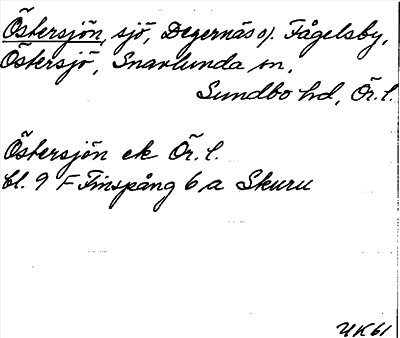 Östersjön, sjö, Degernäs o/. Fågelsby,
Östersjö, Snavlunda sn,
Sundbo hd, Ör. l.
Östersjön ek Ör. l.
bl. 9 F Finspång 6 a Skuru
UK61